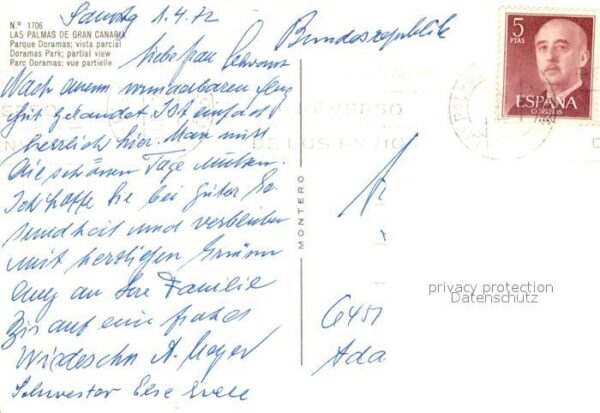 1.4.72
Nº 1706
LAS PALMAS DE GRAN CANARIA
Parque Doramas; vista parcial
Doramas Park; partial view
Parc Doramas; vue partielle
Liebe Frau
Nach einem wundbaren Flug
gut gelandet Ist einfach
herrlich hier. Man muß
die schönen Tage nutzen.
Ich hoffe Sie bei guter Ge
sundheit und verbleiben
mit herzlichen Grüßen
auch an Ihre Familie
Bis auf ein frohes
Wiedersehn A. Meyer
Schwester Else
MONTERO
Bundesrepublik
5
PTAS
ESPAÑA
CORREOS
REVERSO
DE LOS ENVIOS
privacy protection
Datenschutz
6451
Ada